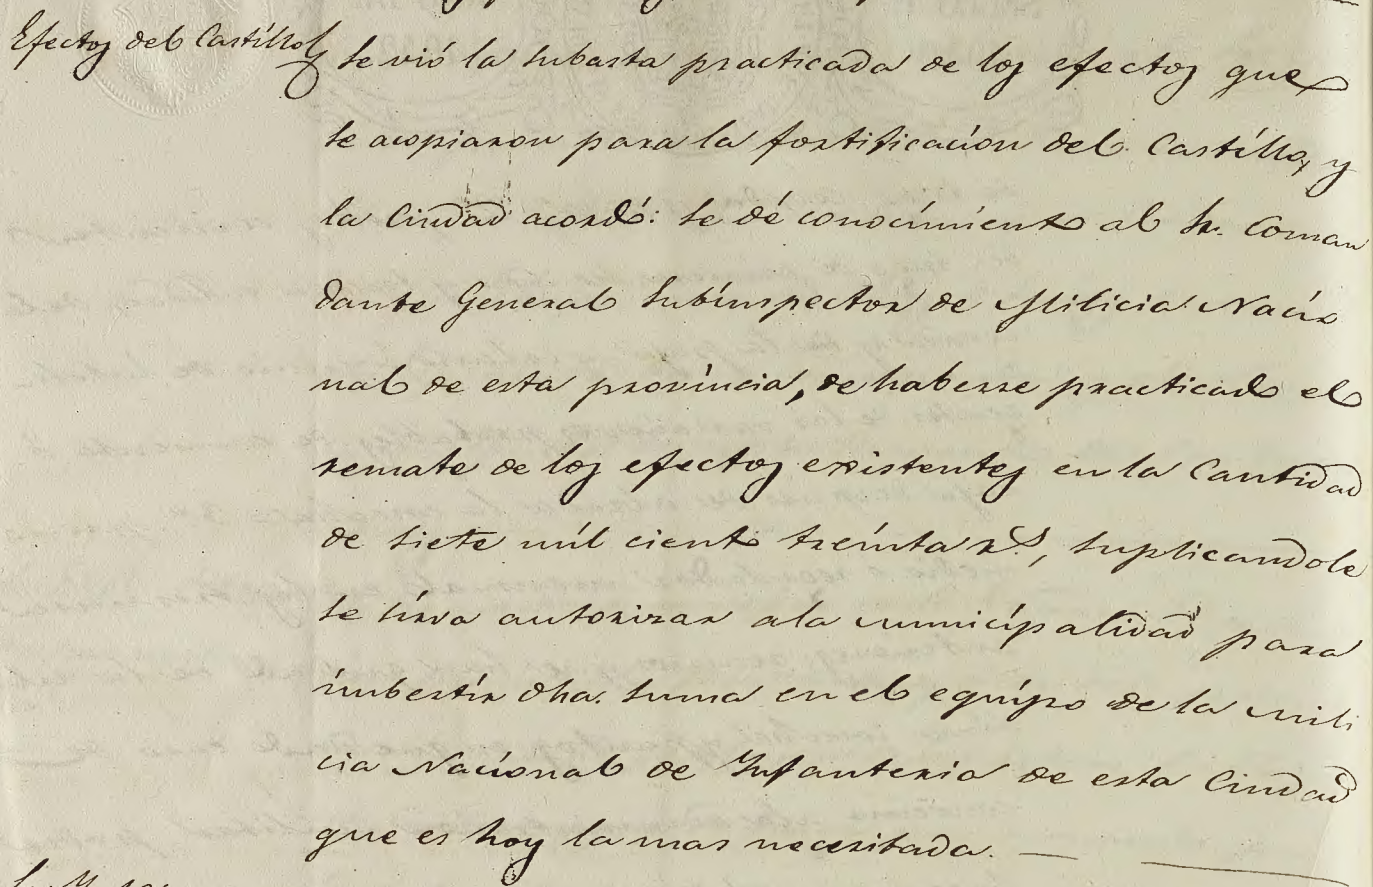 Efectos del Castillo
Se vió la subasta practicada de los efectos que
se acopiaron para la fortificacion del Castillo, y
la Ciudad acordó: se dé conocimiento al Sr. Coman
dante General Subinspector de Milicia Nacio
nal de esta provincia, de haberse practicado el
remate de los efectos existentes en la Cantidad
de siete mil ciento treinta rs., suplicandole
se sirva autorizar a la municipalidad para
imbertir dha. suma en el equipo de la mili
cia Nacional de Infanteria de esta Ciudad
que es hoy la mas necesitada.